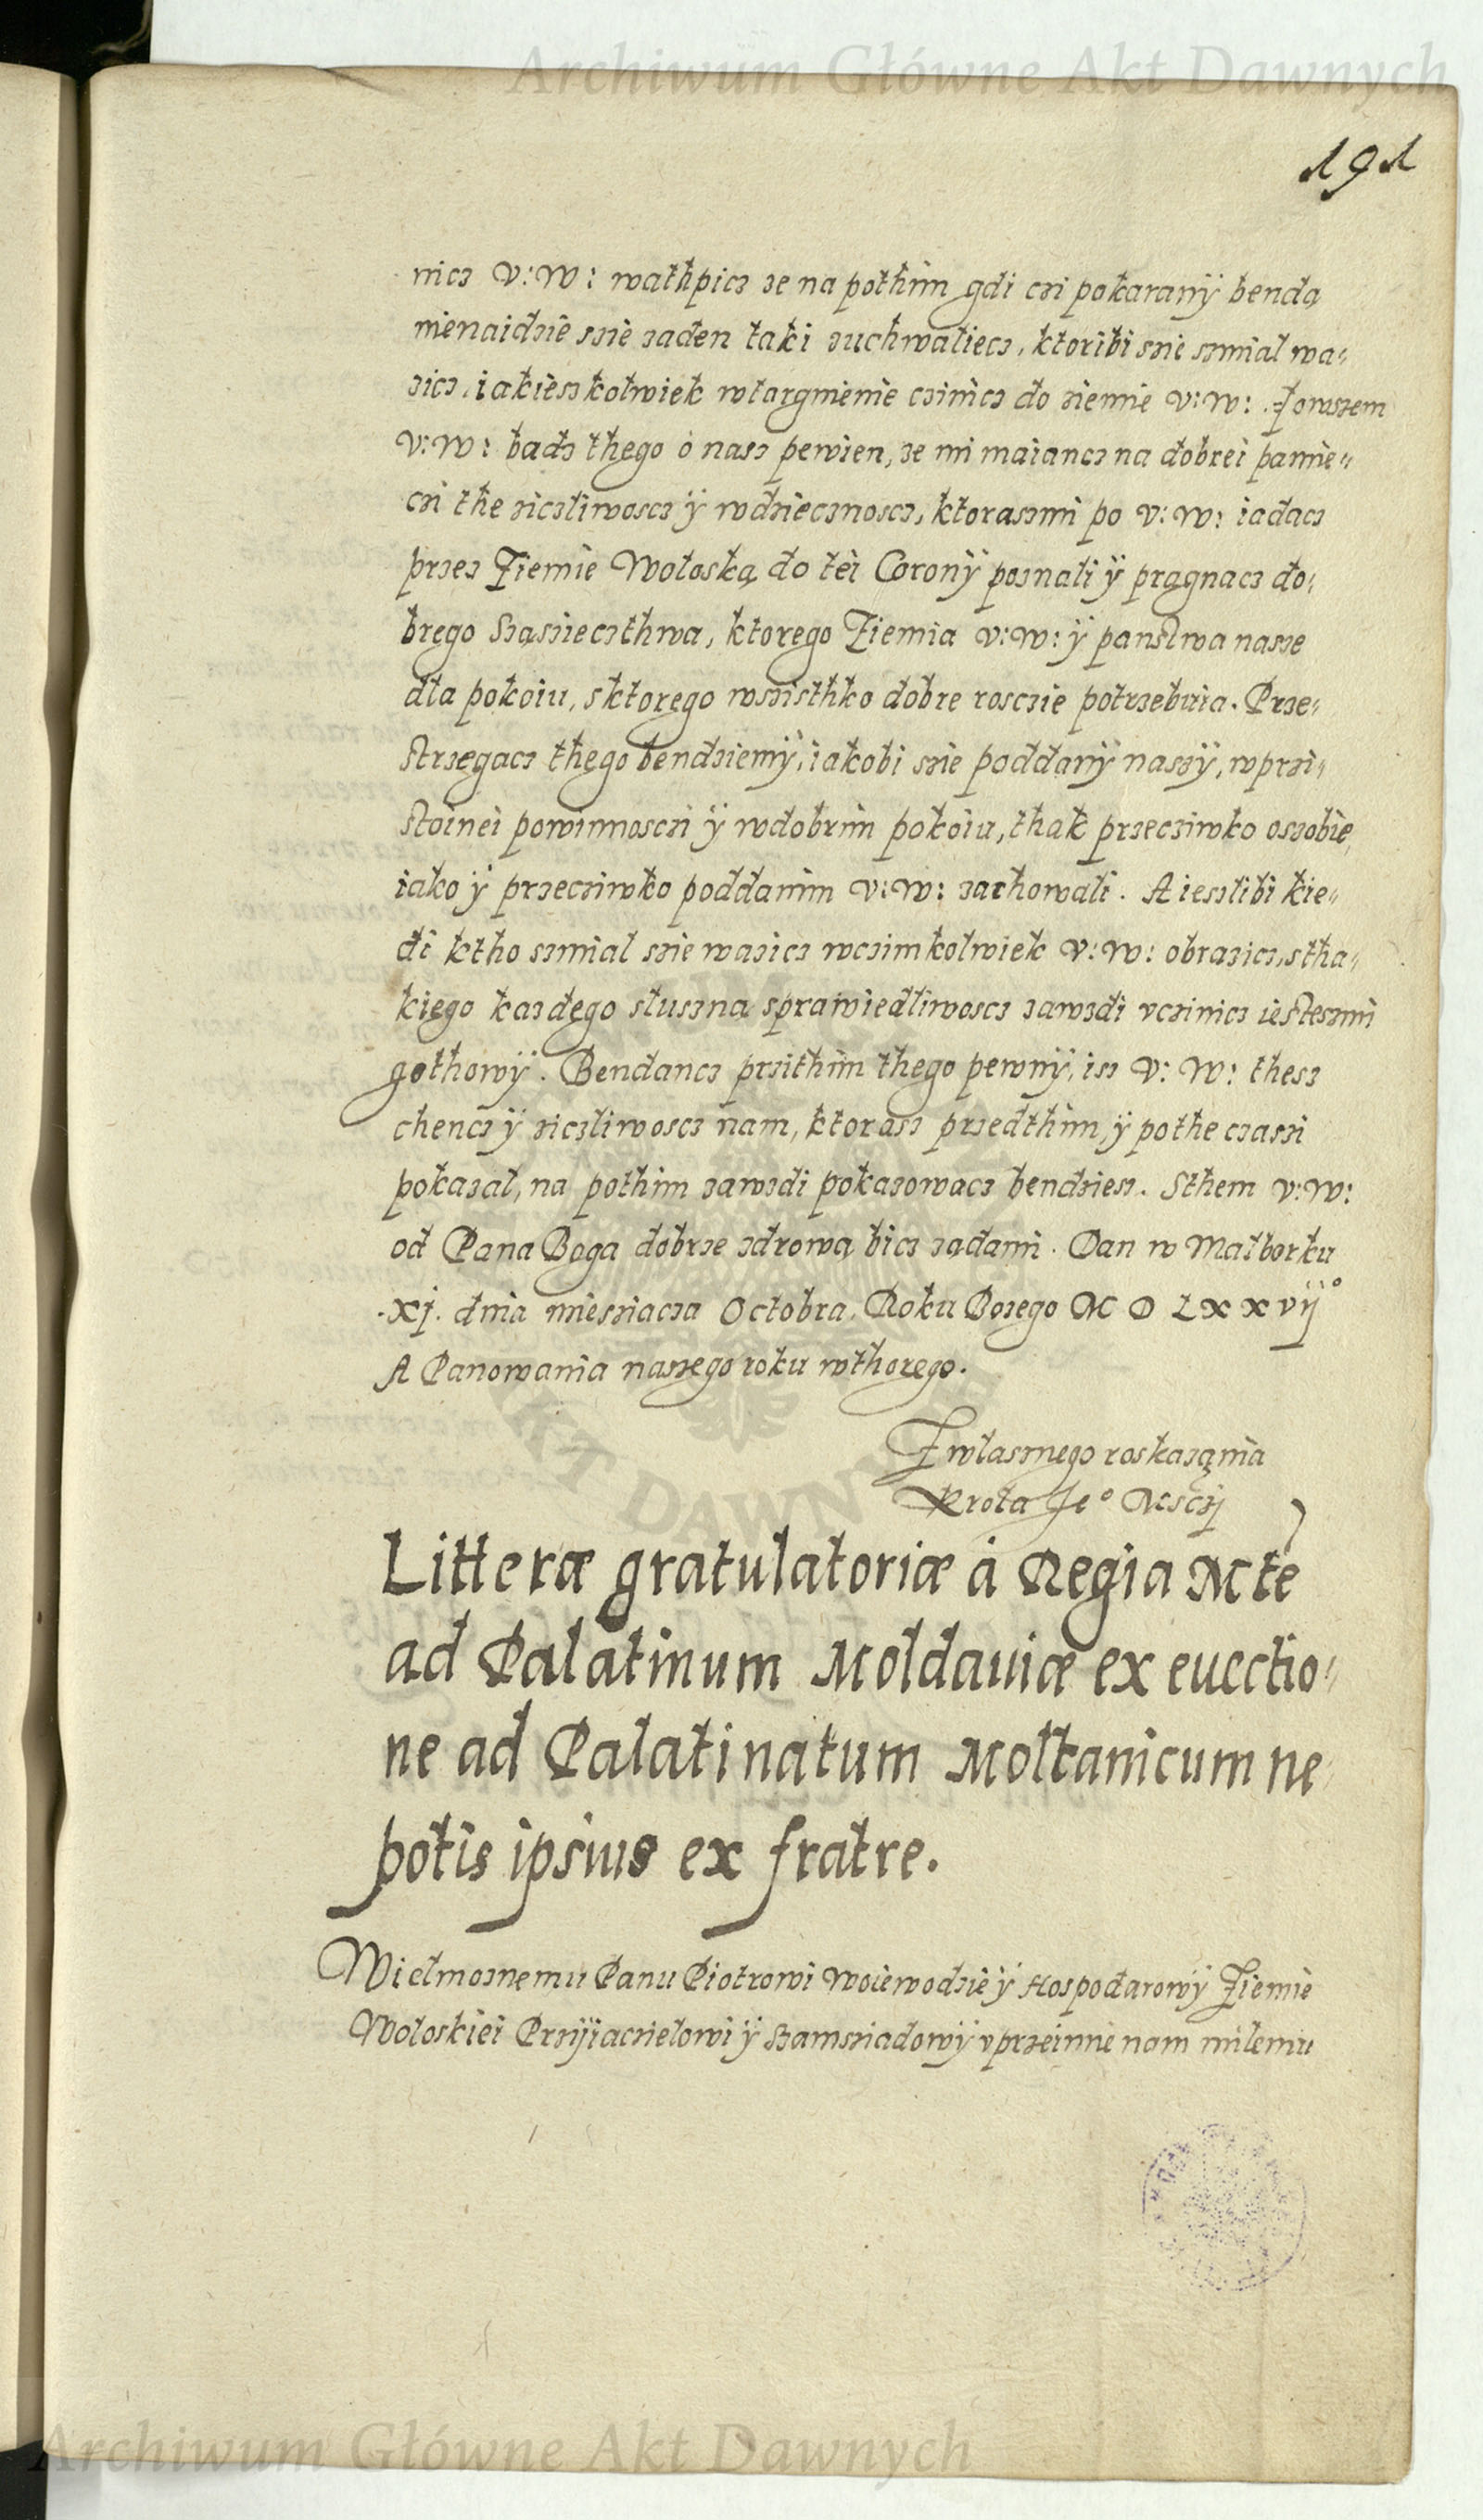 Archiwum Główne Akt Dawnych
191
nicz V:W: wathpicz ze na pothim gdi czi pokaranÿ benda
nienaidzie szie zaden taki zuchwaliecz, ktoribi szie szmial wa„
zicz, iakieszkolwiek wtargnienie czinicz do ziemie V:W: Jowszem
V:W: badz thego o nasz pewien, ze mi maiancz na dobrei pamie„
czi the ziczliwoscz ÿ wdziecznoscz, ktoraszmi po V:W: iadacz
przez Ziemie Wołoską do tei Coronÿ poznali ÿ pragnacz do„
brego Sząsziecżthwa, ktorego Ziemia V:W: ÿ panstwa nasze
dla pokoiu, sktorego wszisthko dobre rosczie potrzebuia. Prze„
strzegacz thego bendziemÿ, iakobi szie poddanÿ naszÿ, wprzi„
stoinei powinnosczi ÿ wdobrim pokoiu, thak przecziwko oszobie
iako ÿ przecziwko poddanim V:W: zachowali. A ieszlibi kie„
di ktho szmial szie wazicz wczimkolwiek V:W: obrazicz, stha„
kiego kazdego słuszna sprawiedliwoscz zawzdi vczinicz iestesmi
gothowÿ. Bendancz przithim thego pewnÿ, isz V: W: thesz
chencz ÿ ziczliwoscz nam, ktorasz przedthim, ÿ pothe czaszi
pokazal, na pothim zawzdi pokazowacz bendziesz. Sthem V:W:
od Pana Boga dobrze zdrową bicz ządami. Dan w Malborku
.xj. dnia miesziacza Octobra, Roku Bozego M D L x x vij°
A Panowania naszego roku wthorego.
Z własznego roskazania
Krola Je° Msczij
Litteræ gratulatoriæ à Regia Mte
ad Palatinum Moldauiæ ex euectio„
ne ad Palatinatum Moltanicum ne„
potis ipsius ex fratre.
Wielmoznemu Panu Piotrowi Woiewodzie ÿ Hospodarowÿ Ziemie
Wołoskiei Przÿiacielowi ÿ Szamsziadowÿ vprzeimie nam milemu
Archiwum Główne Akt Dawnych